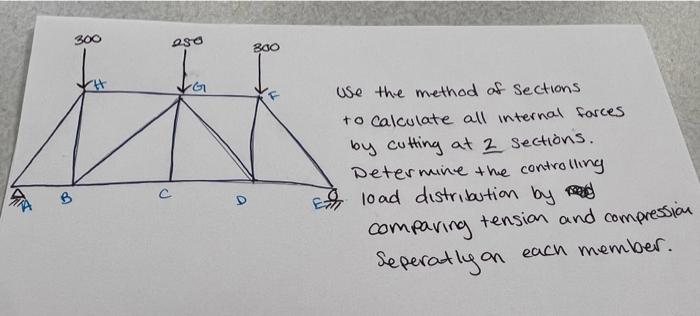 300
250
300
H
G
F
A
B
C
D
E
Use the method of Sections
to calculate all internal forces
by cutting at 2 sections.
Determine the controlling
load distribution by
comparing tension and compression
Seperatly on each member.